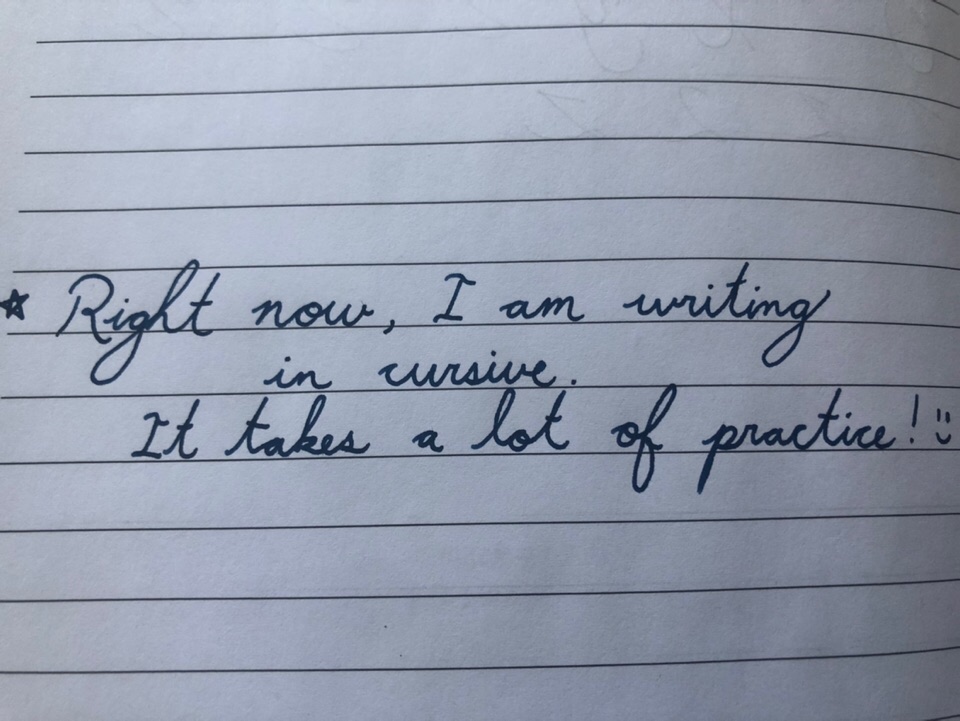 ☆ Right now, I am writing
in cursive.
It takes a lot of practice! :)